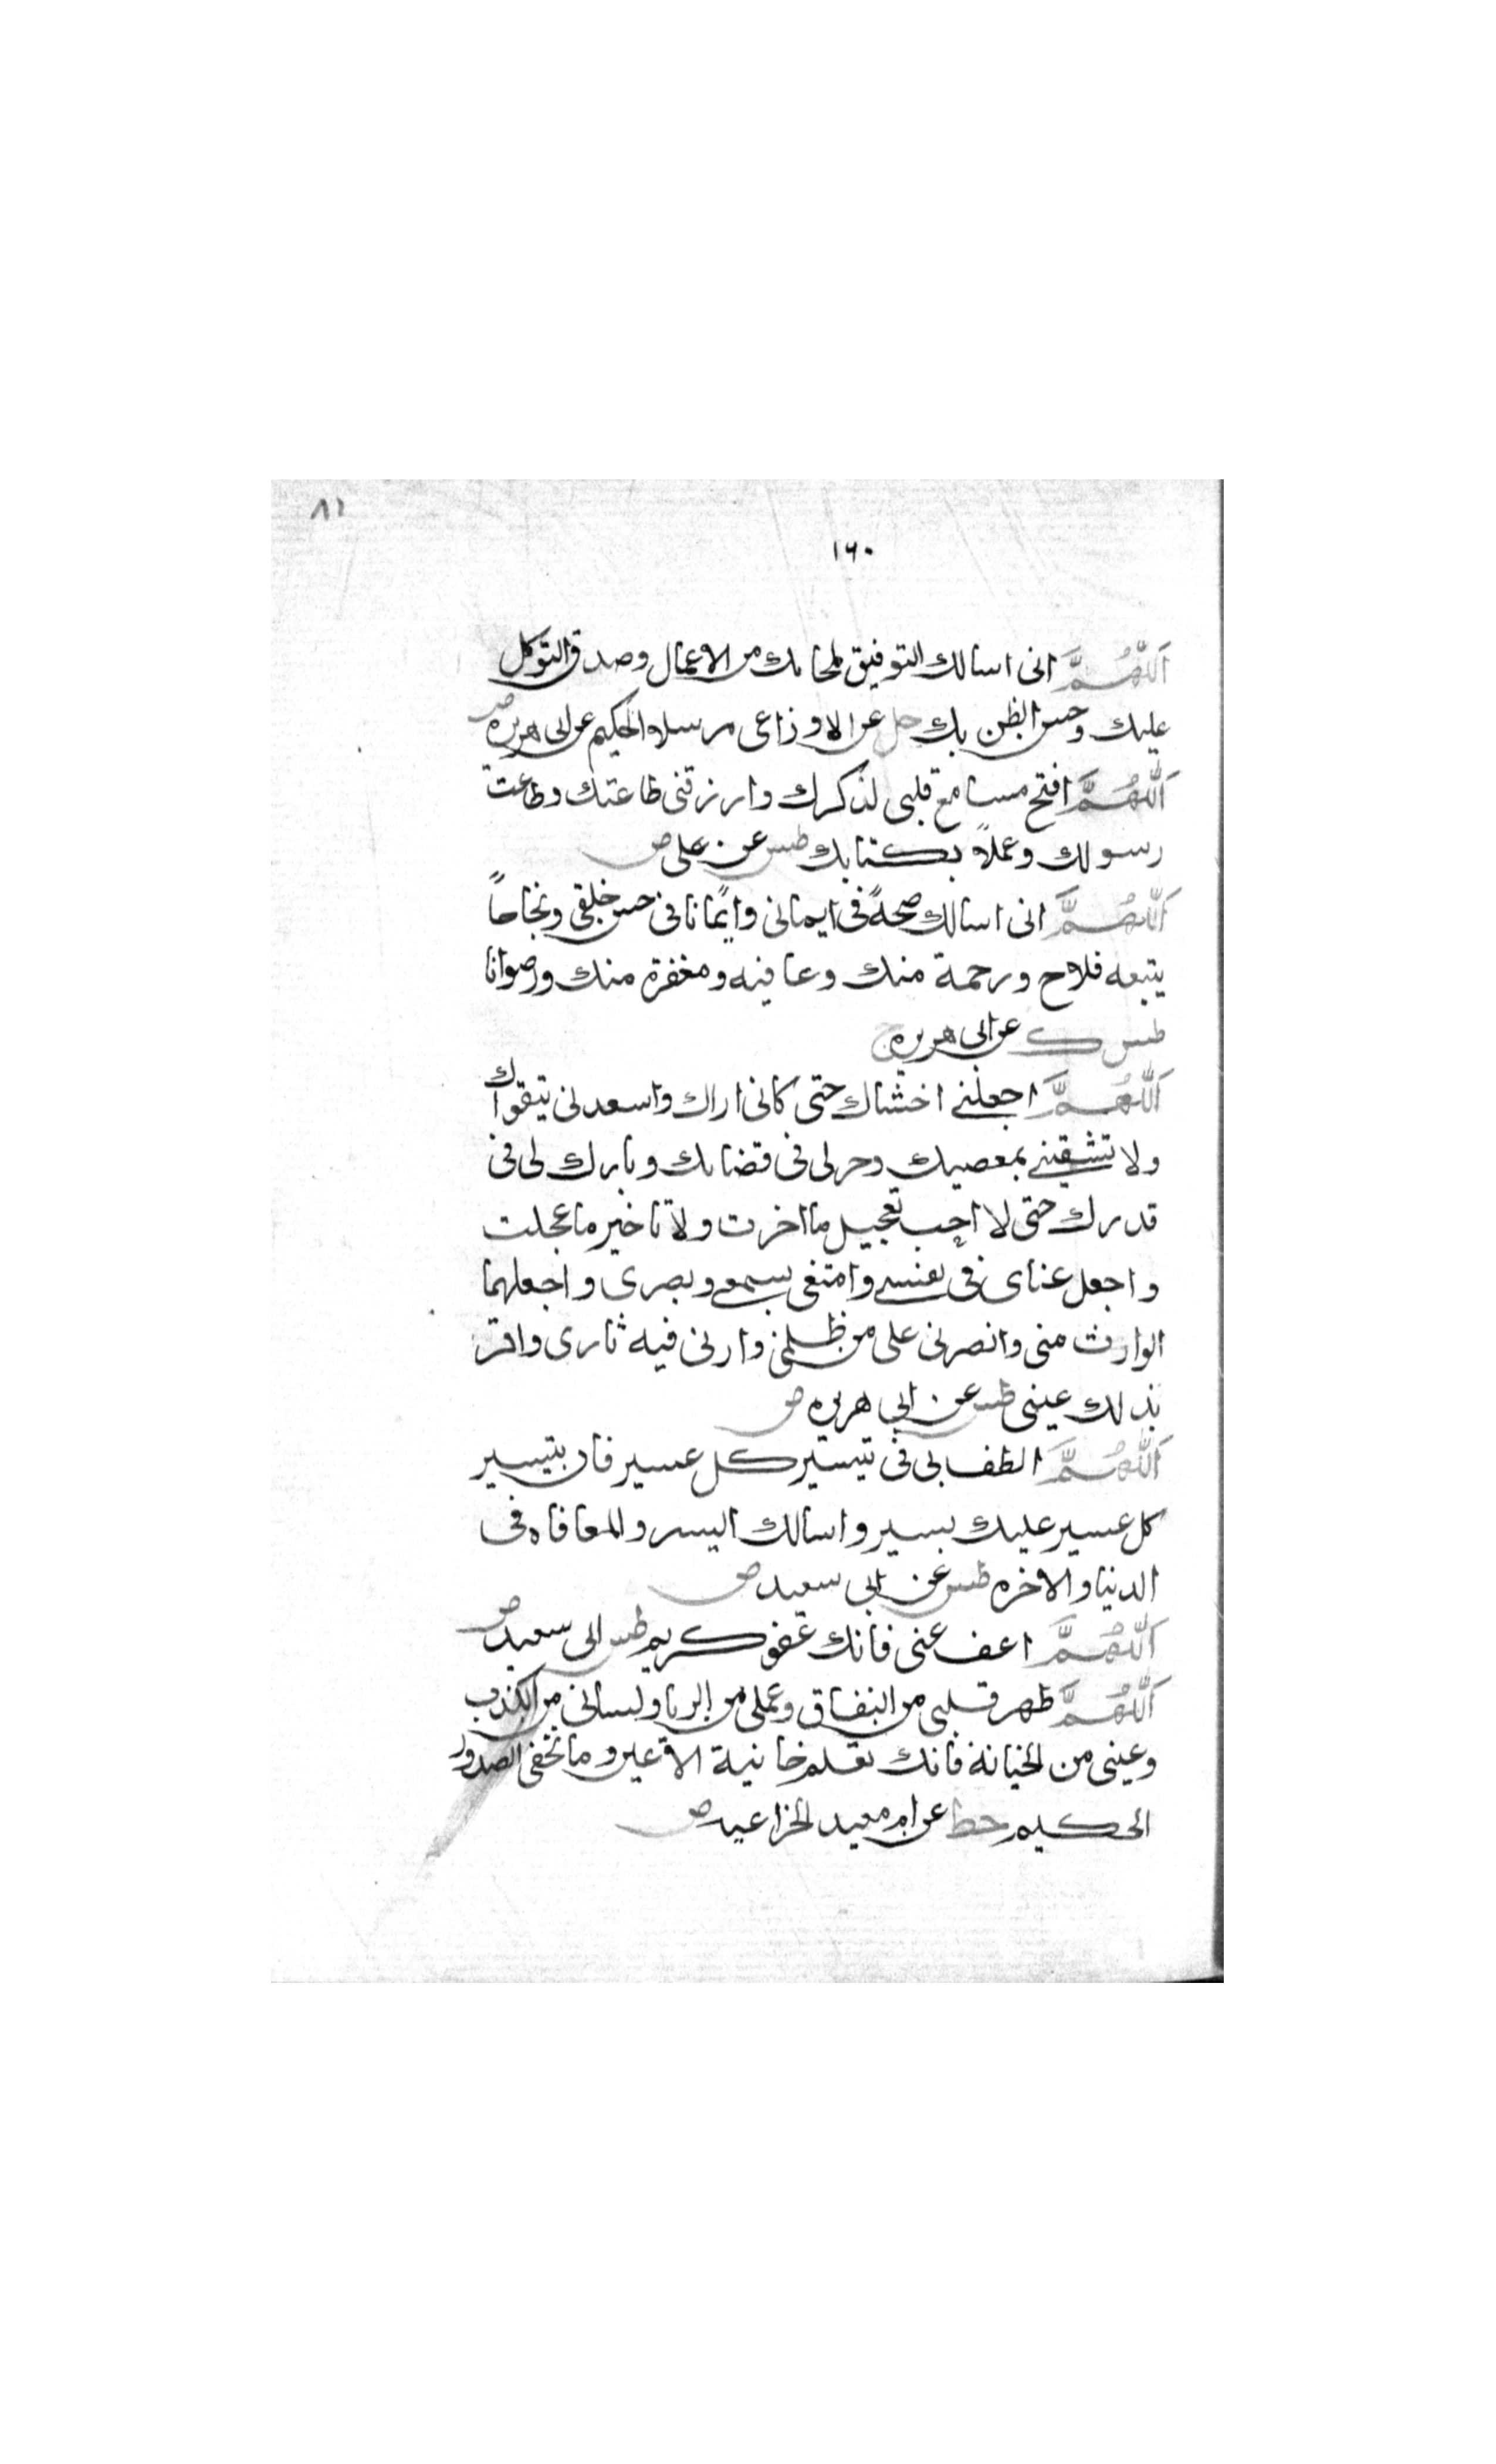 ٨١
١٦٠
اَللّٰهُمَّ انى اسالك التوفيق لمحابك من الاعمال وصدق التوكل
عليك وحسن الظن بك حل عن الاوزاعى مرسلا والحكيم عن ابى هريره ض
اَللّٰهُمَّ افتح مسامع قلبى لذكرك وارزقنى طاعتك وطاعت
رسولك وعملاً بكتابك طس عن على ض
اَللّٰهُمَّ انى اسالك صحةً فى ايمانى وايمانا فى حسن خلقى ونجاحاً
يتبعه فلاح ورحمة منك وعافيه ومغفرة منك ورضوانا
طس ك عن ابى هريره
اَللّٰهُمَّ اجعلنى اخشاك حتى كانى اراك واسعدنى بتقواك
ولا تشقينى بمعصيك وخرلى فى قضائك وبارك لى فى
قدرك حتى لا احب تعجيل ما اخرت ولا تاخير ما عجلت
واجعل غناى فى نفسى وامتغى بسمعى وبصرى واجعلهما
الوارث منى وانصرنى على من ظلمنى وارنى فيه ثارى واقر
بذلك عينى طس عن ابى هريره ض
اَللّٰهُمَّ الطف بى فى تيسير كل عسير فان بتيسير
كل عسير عليك يسير واسالك اليسر والمعافاه فى
الدنيا والاخره طس عن ابى سعيد ض
اَللّٰهُمَّ اعف عنى فانك عفو كريم طس ابى سعيد ض
اَللّٰهُمَّ طهر قلبى من النفاق وعملى من الريا ولسانى من الكذب
وعينى من الخيانة فانك تعلم خانية الاعين وما تخفى الصدور
الحكيم خط عن ام معبد الخزاعيه ض